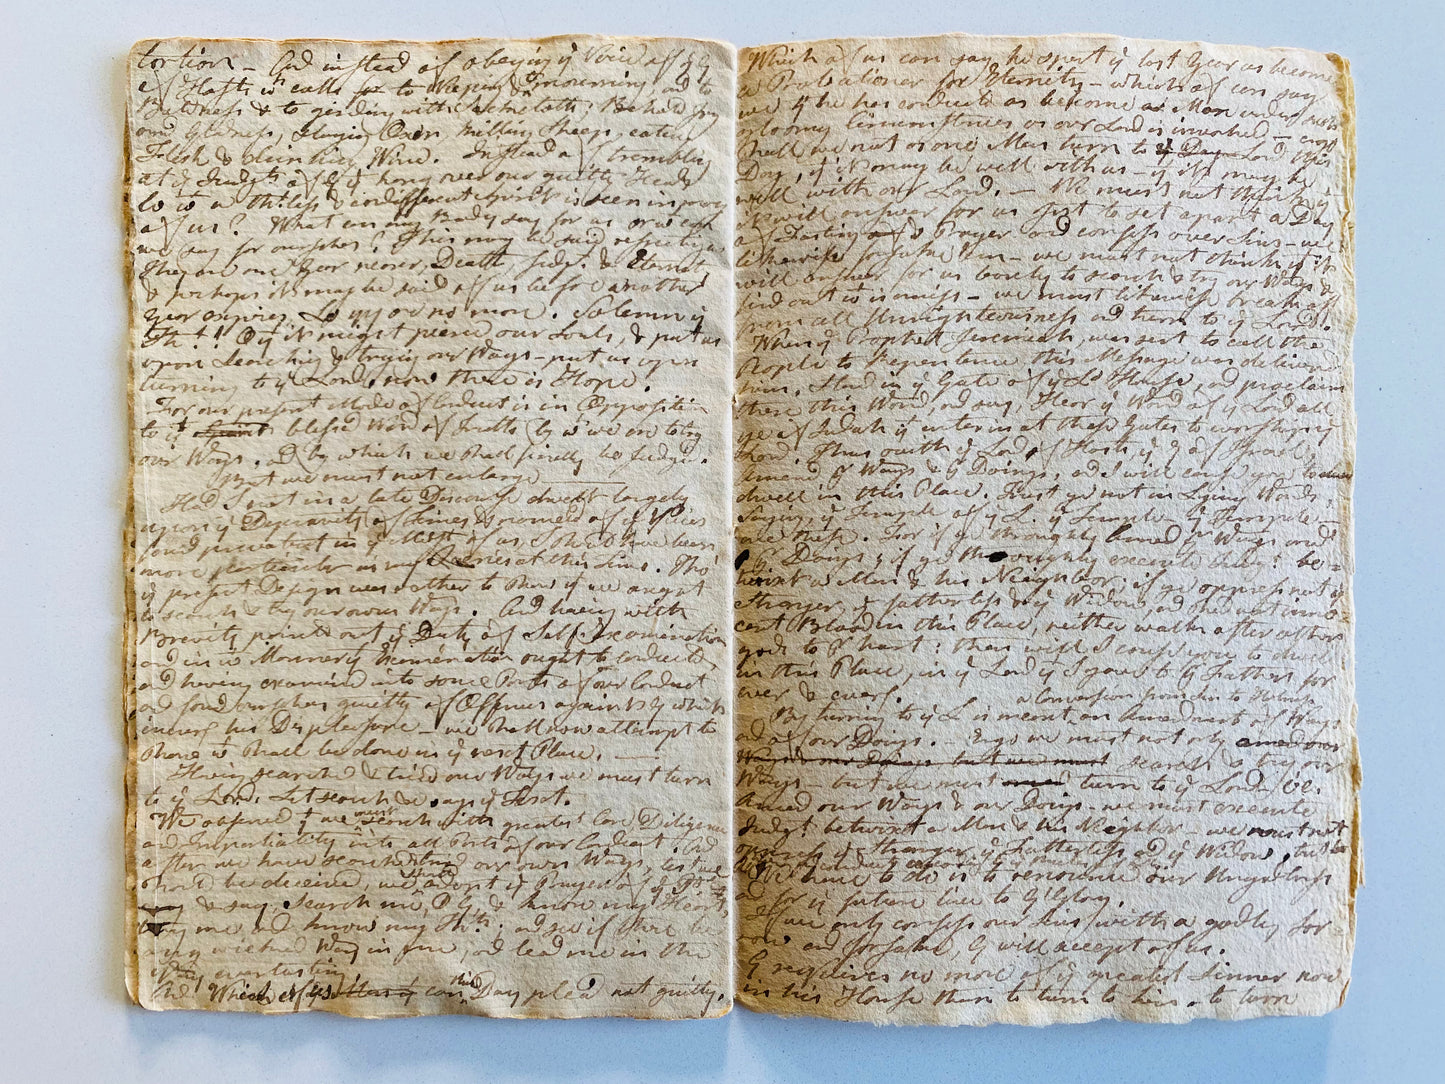 tortion — God instead of obeying ye Voice of ye L G
of Hosts wc calls us to weeping & mourning, and to
Baldness & to girding with Sackcloth; Behold Joy
and Gladness, slaying Oxen killing Sheep, eating
Flesh & drinking Wine. Instead of trembling
at ye Judgts of G ye hang over our guilty Heads
lo w a thtless & indifferent Spirit is seen in many
of us? What can any Body say for us or w can
we say for ourselves? This may be said respecting
They are one Year nearer Death, Judgt & Eternity
& perhaps it may be said of us before another
Year expires Lo yy are no more. Solemn ye
Tht!! O yt it might pierce our Souls, & put us
upon Searching & trying our Ways — put us upon
turning to ye Lord, now there is Hope.
For our present Mode of Conduct is in Opposition
to ye blessed Word of Truth by wc we are to try
our Ways, and by which we shall finally be Judged.
But we must not enlarge
Had I not in a late Discourse dwelt largely
upon ye Depravity of Times & named of ye Vices
found prevalent in ye Most of us, I shod have been
more particular in my Queries at this Time. Tho'
ye present Design was rather to shew yt we ought
to search & try our own Ways. And having with
Brevity pointed out ye Duty of Self-Examination
and in w Manner ye Examination ought to conducted
and having examined into some Parts of our Conduct
and found ourselves guilty of Offences against G which
incurs his Displeasure — we shall now attempt to
shew w shall be done in ye next Place.
Having searched & tried our Ways we must turn
to ye Lord. Let search & say ye Text.
We observed yt we must search with greatest Care Diligence
and Impartiality into all Parts of our Conduct And
after we have searched and tried our own Ways, lest we
shod be deceived, we shod adopt ye Prayer of ye
& say, Search me, O G, & know my Heart,
try me, and know my Thts: and see if there be
any wicked Way in me, and lead me in the
Way everlasting
And Which of us can this Day plead not guilty.
Which of us can say he spent ye last Year as became
a Probationer for Eternity — which of us can say
we yt he has conducted as became a Man under such
gloomy Circumstances as our Land is involved —
shall we not as one Man turn to ye Lord this
Day, yt it may be well with us — yt it may be
well with our Land. — We must not think yt
it will answer for us just to set apart a Day
of Fasting & Prayer and confess over Sins — we
likewise forsake them — we must not think yt it
will answer for us barely to search & try our Ways &
find out w is amiss — we must likewise break off
from all Unrighteousness and turn to ye Lord.
When ye Prophet Jeremiah was sent to call the
People to Repentance this Message was deliverd
him, Stand in ye Gate of ye Ls House, and proclaim
there this Word, and say, Hear ye Word of ye Lord all
ye of Judah yt enter in at these Gates to worship ye
Lord. Thus saith ye Lord of Hosts ye G of Israel,
Amend yr Ways & yr Doings, and I will cause you to
dwell in this Place. Trust ye not in Lying Words
saying, ye Temple of ye L. ye Temple of ye
are these. For if ye throughly amend yr Ways and
yr Doings; if ye throughly execute Judgt be=
twixt a Man & his Neighbor; if ye oppress not ye
Stranger, ye fatherless & ye Widow, and shed not inno=
cent Blood in this Place, neither walk after other
gods to yr hurt: then will I cause you to dwell
in this Place, in ye Land yt I gave to yr Fathers, for
ever & ever.
By turning to ye L is meant, an Amendment of Ways
and of our Doings. — Ergo we must not only
search & try our
Ways but we must turn to ye Lord, i.e.
Amend our Ways & our Doings we must execute
Judgt betwixt a Man & his Neighbor — we must not
oppress ye Stranger, ye Fatherless and ye Widow,
We have to do is to renounce our Ungodliness
and for ye future live to G's Glory.
If we only confess our Sins with a godly Sor=
row, and forsake, G will accept of us.
G requires no more of ye greatest Sinner now
in his House than to turn to him. to turn